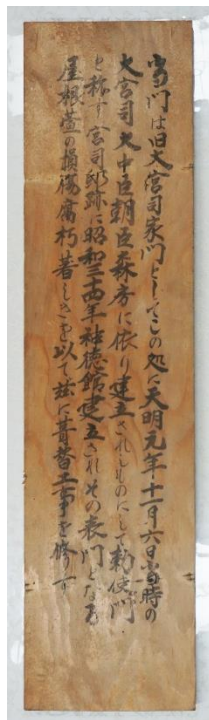 当門は旧大宮司家門としてこの処に天明元年十一月六日当時の
大宮司大中臣朝臣森房に依り建立されしものにして勅使門
と称す宮司邸跡に昭和三十四年神徳館建立されその表門となる
屋根萱の損傷腐朽著しきを以て茲に葺替工事を修す